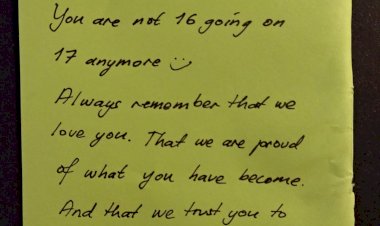 You are not 16 going on
17 anymore :)
Always remember that we
love you. That we are proud
of what you have become.
And that we trust you to